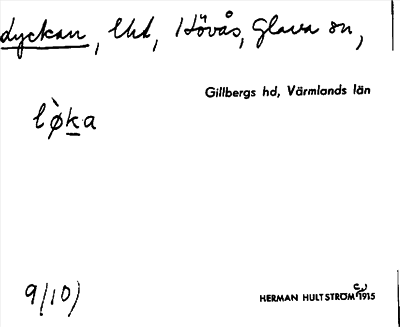 dyckan, lhd, Hövås, Glava sn,
Gillbergs hd, Värmlands län
lø̀ka
9/10)
HERMAN HULTSTRÖM 1915